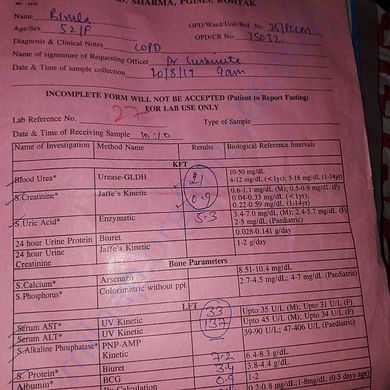 SHARMA, PGIMS, ROHTAK
Name Bimla
Age/Sex 52/F
OPD/Ward/Unit/Bed No
OPD/CR No. 75032
Diagnosis & Clinical Notes COPD
Name of signature of Requesting Officer Dr
Date & Time of sample collection 20/8/17 9am
INCOMPLETE FORM WILL NOT BE ACCEPTED (Patient to Report Fasting)
FOR LAB USE ONLY
27
Lab Reference No. Type of Sample
Date & Time of Receiving Sample 10:10
Name of Investigation Method Name Results Biological Reference Intervals
KFT
Blood Urea* Urease-GLDH 21 10-50 mg/dL
4-12 mg/dL (<1yr); 5-18 mg/dL (1-14yr)
S.Creatinine* Jaffe's Kinetic 0.9 0.6-1.1 mg/dL (M); 0.5-0.9 mg/dL (F)
0.04-0.33 mg/dL (<1yr);
0.22-0.59 mg/dL (1-14yr)
S.Uric Acid* Enzymatic 5.3 3.4-7.0 mg/dL (M); 2.4-5.7 mg/dL (F)
2-5 mg/dL (Paediatric)
24 hour Urine Protein Biuret 0.028-0.141 g/day
24 hour Urine Creatinine Jaffe's Kinetic 1-2 g/day
Bone Parameters
S.Calcium* Arsenazo 8.51-10.4 mg/dL
S.Phosphorus* Colorimetric without ppt. 2.7-4.5 mg/dL; 4-7 mg/dL (Paediatric)
LFT
Serum AST* UV Kinetic 33 Upto 35 U/L (M); Upto 31 U/L (F)
Serum ALT* UV Kinetic 137 Upto 45 U/L (M); Upto 34 U/L (F)
S.Alkaline Phosphatase* PNP-AMP Kinetic 39-90 U/L; 47-406 U/L (Paediatric)
S. Protein* Biuret 7.2 6.4-8.3 g/dL
Albumin* BCG 3.4 3.8-4.4 g/dL
1-2